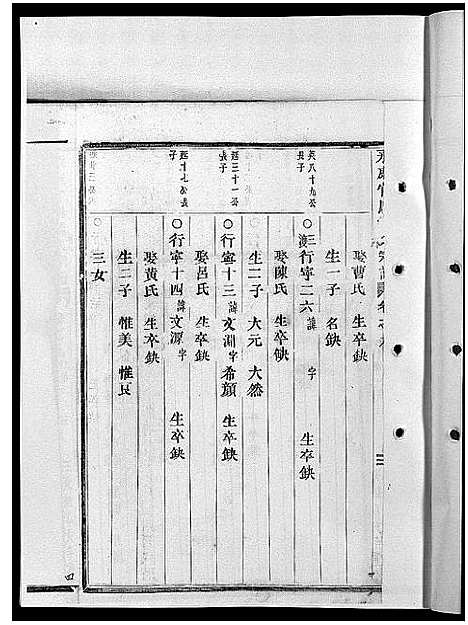 娶曹氏 生卒缺
生一子 名缺
癸八十九公長子
三渡
行寧二六 諱 字 生卒缺
娶陳氏 生卒缺
生二子 大元 大然
廷三十一公長子
行寧十三 諱文淵 字希顏 生卒缺
娶呂氏 生卒缺
廷十七公長子
行寧十四 諱文源 字 生卒缺
娶黃氏 生卒缺
生二子 惟美 惟良
三女
四